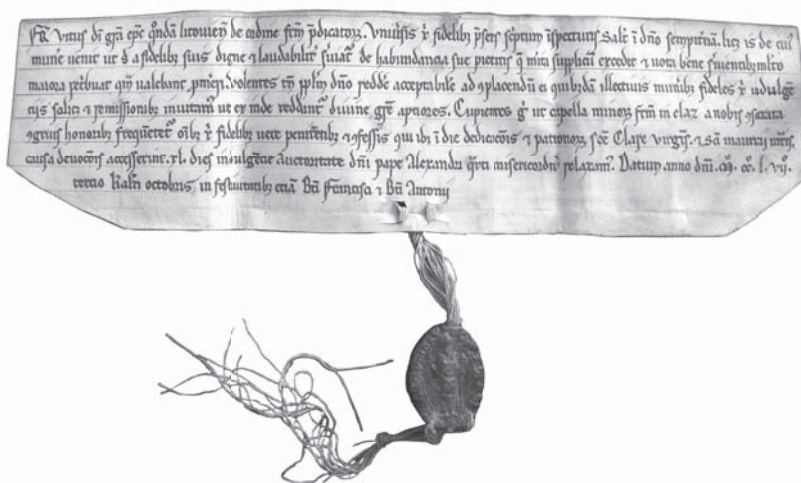 Fr̄ Vitus dī gr̄a ep̄c q̄ndā litowien̄ de ordine fr̄m p̄dicatoꝝ. Vniūsis xp̄i fidelibꝫ p̄sens sc̄ptum īspecturis Salt̄ ī dn̄o sempit̄na. licꝫ is de cui᷒
mun̄e uenit ut ei a fidelibꝫ suis digne ⁊ laudabilit̄ s̄uiat᷑ de habundancia sue pietatis q̄ mīta supplicū excedit ⁊ uota bene s̄uientibꝫ ml̄to
maiora ret̄buat qm̄ ualeant p̄m̄eri. uolentes tn̄ pp̄lm dn̄o redde acceptabilē ad ꝯplacendū ei quibꝫdā illectiuis mun̄ibꝫ fideles xp̄i indulgē
ciis salicꝫ ⁊ remissionibꝫ inuitam᷒ ut ex inde reddant᷑ diuine gr̄e aptiores. Cupientes gͦ ut capella minoꝝ fr̄m in claz a nobis ꝯsecrata
ꝯgruis honoribꝫ frequētet᷑ oīb᷒ xp̄i fidelibꝫ uere penitētibꝫ ⁊ ꝯfessis qui ibi ī die dedicacōis ⁊ patronoꝝ sc̄e Clare uirgīs. ⁊ sc̄i mauricii mr̄is.
causa deuocōis accesserint. xl. dies indulgēcie auctoritate dn̄i pape Alexandri q̄rti misericordit̄ relaxam᷒. Datum anno dn̄i. ꝏ. cͦcͦ. l. vijͦ.
tercio kaln̄ octobris. in festiuitatibꝫ eciā Bī Francisci ⁊ Bī Antonij